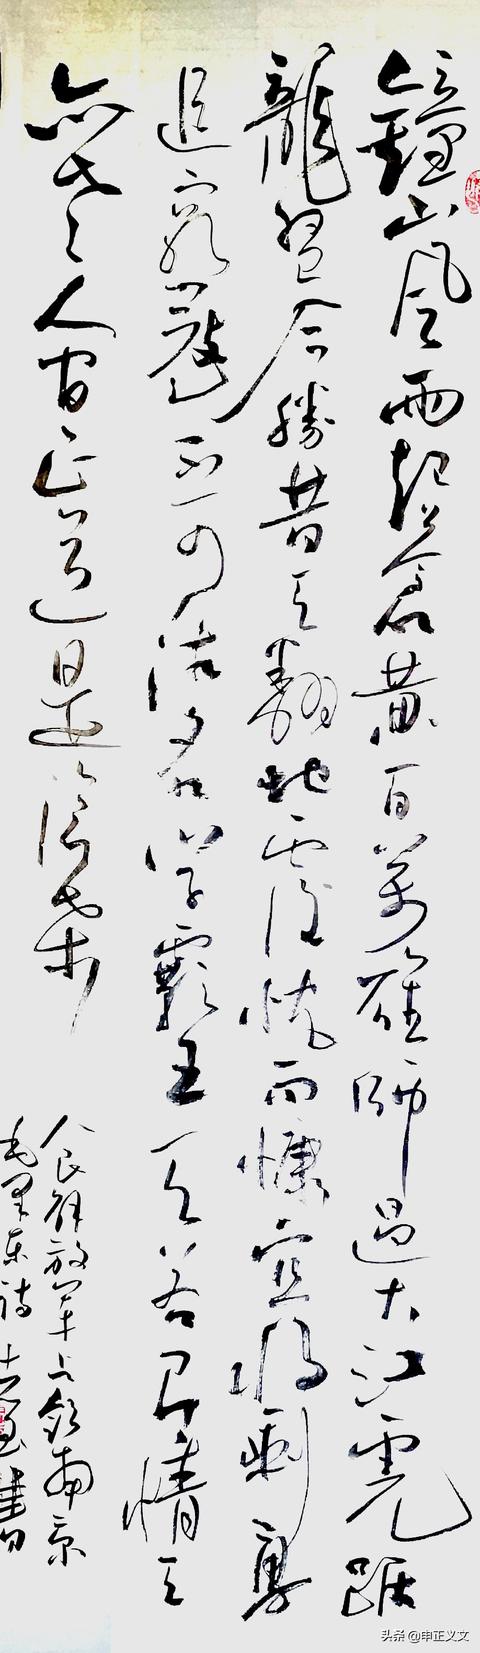 鐘山風雨起蒼黃百萬雄師過大江虎踞
龍盤今勝昔天翻地覆慨而慷宜將剩勇
追窮寇不可沽名學霸王天若有情天
亦老人間正道是滄桑
人民解放軍占領南京
毛澤東詩 書
头条 @申正义文